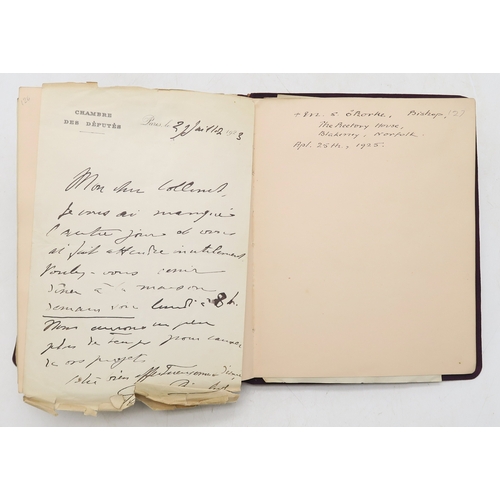 CHAMBRE
DES DÉPUTÉS
Paris, le 27 Juillet 1903
Mon cher Collinet,
Je vous ai manqué
l'autre jour et vous
ai fait attendre inutilement
Voulez-vous venir
dîner à la maison
demain soir lundi à 8 h.
Nous aurons un peu
plus de temps pour causer
de vos projets
affectueusement
Bishop,
The Rectory House,
Blakeney, Norfolk.
Apl. 25th, 1925.